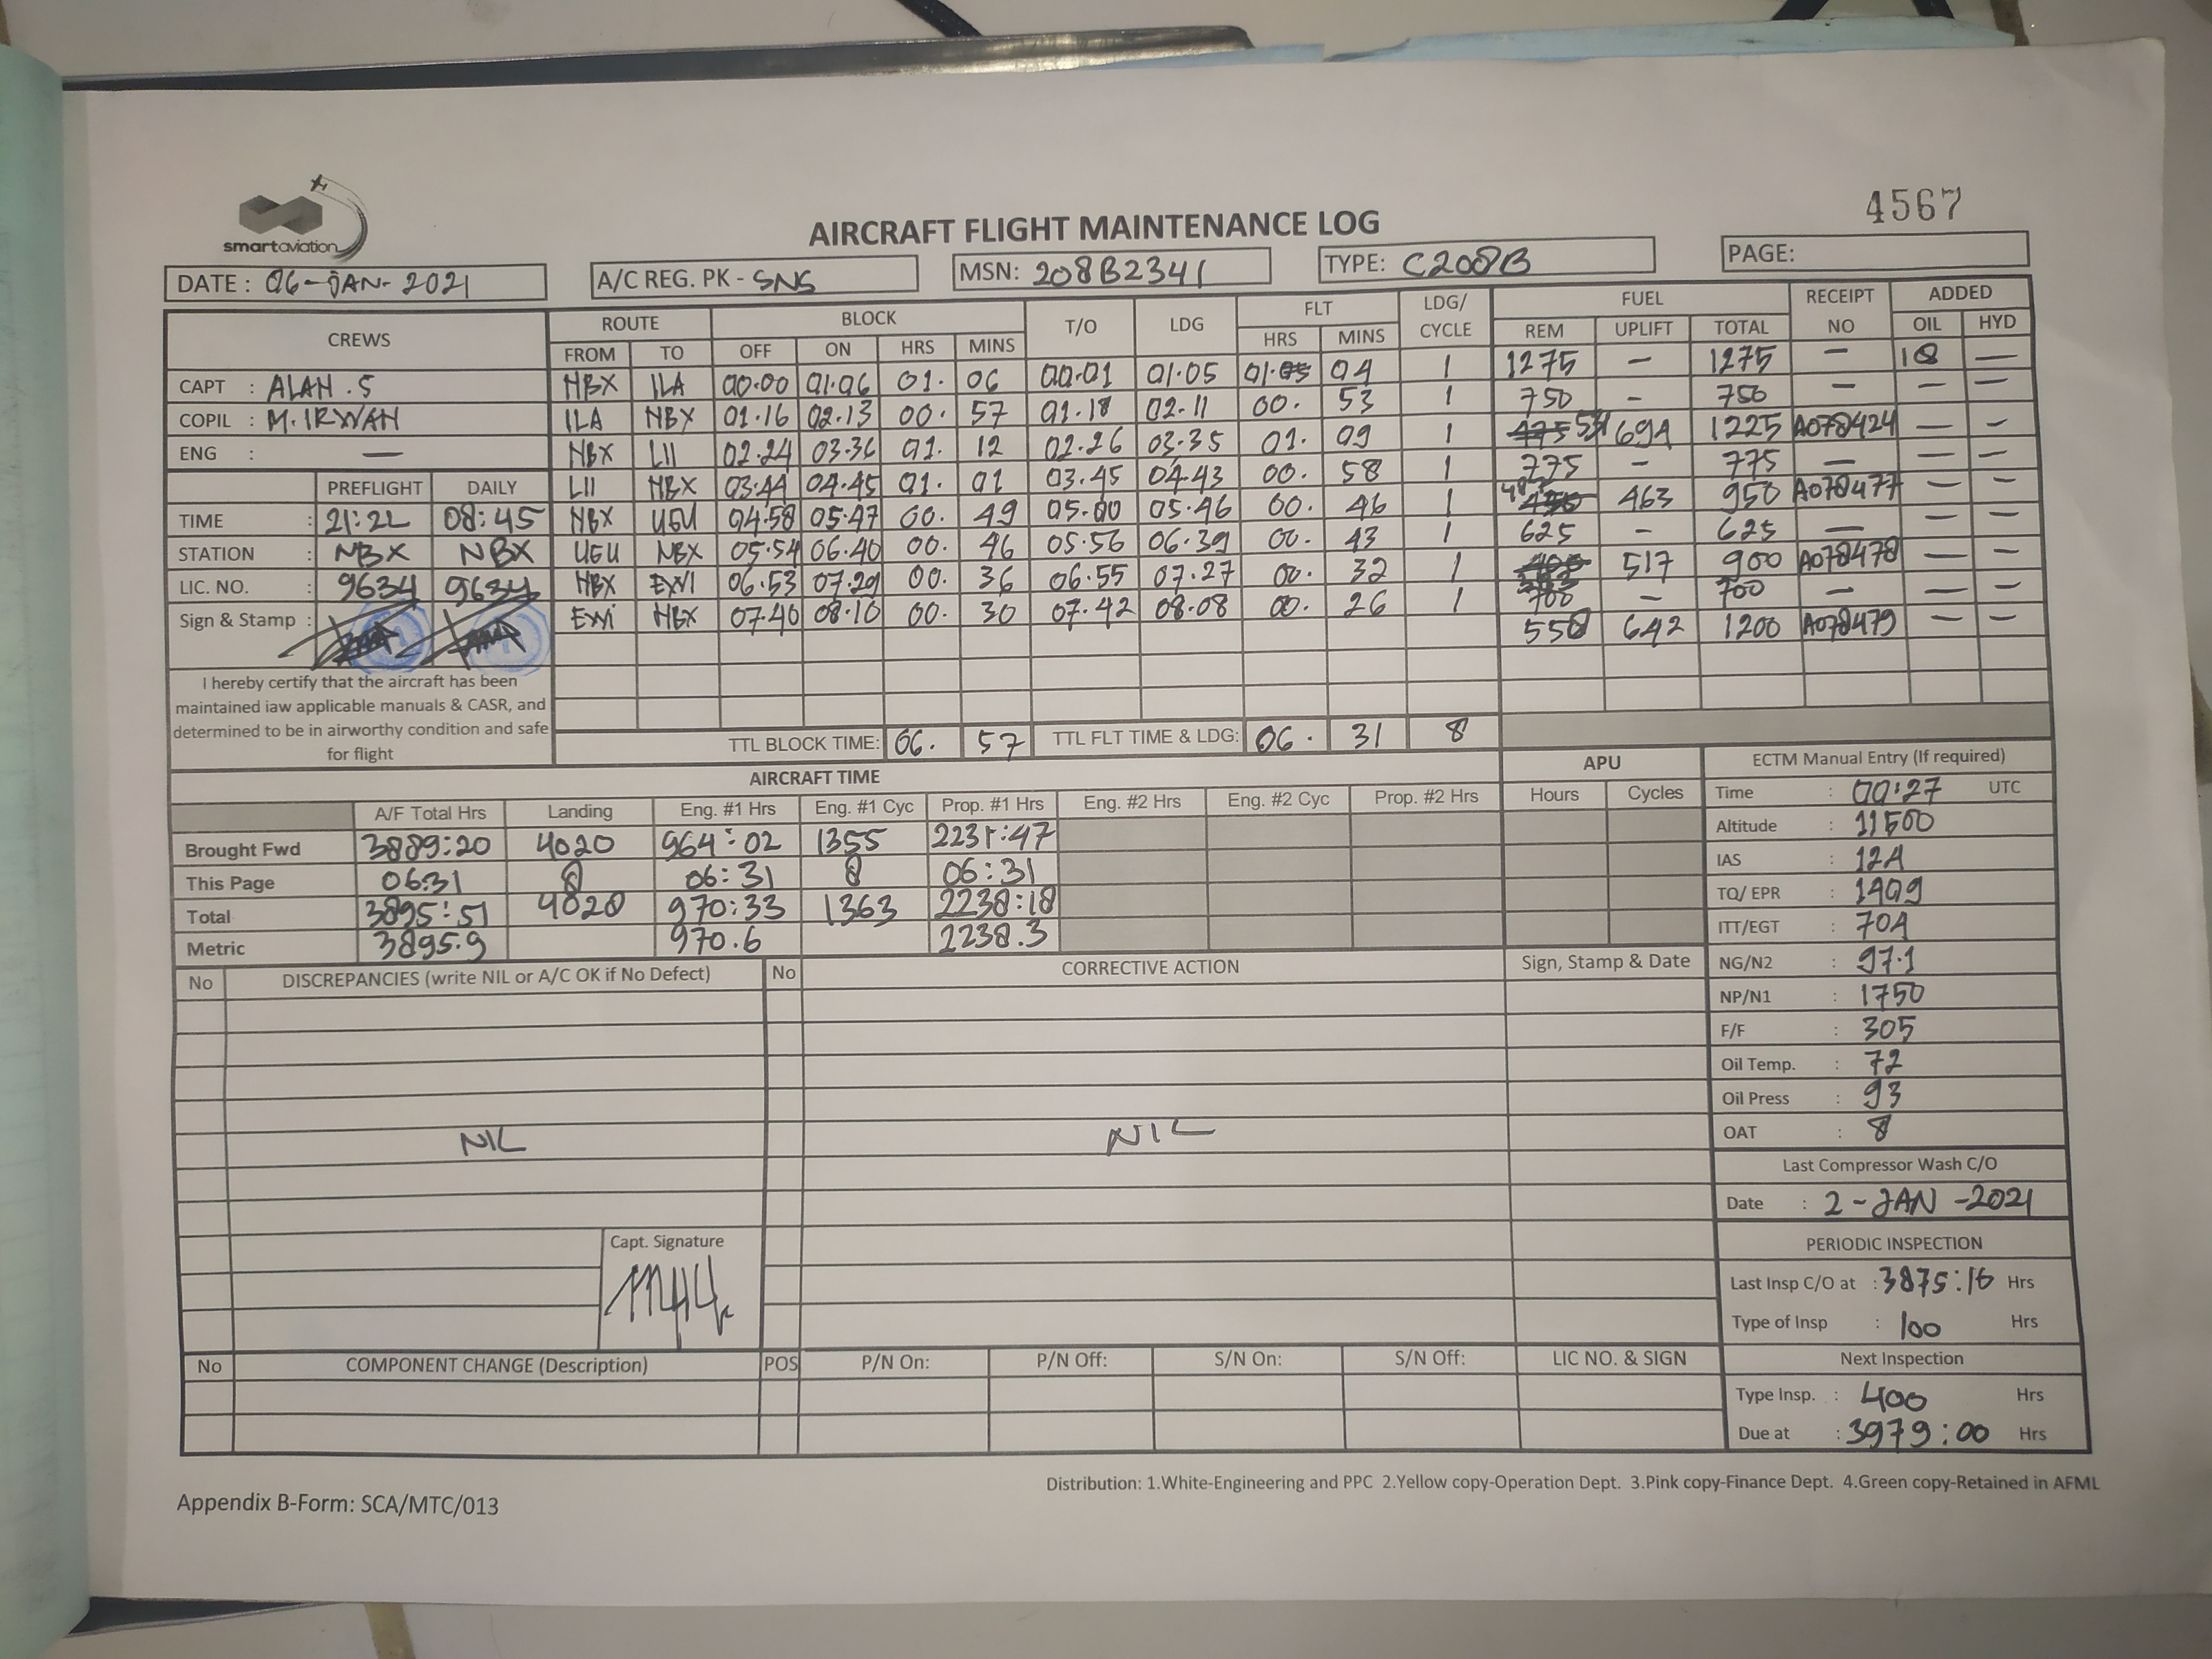 smartaviation
4567
AIRCRAFT FLIGHT MAINTENANCE LOG
DATE : 06-JAN-2021 A/C REG. PK - SNS MSN: 208B2341 TYPE: C208B PAGE:
CREWS ROUTE BLOCK T/O LDG FLT LDG/ CYCLE FUEL RECEIPT NO ADDED
FROM TO OFF ON HRS MINS HRS MINS REM UPLIFT TOTAL OIL HYD
CAPT : ALAN . S NBX ILA 00.00 01.06 01. 06 00.01 01.05 01. 04 1 1275 — 1275 — —
COPIL : M. IRWAN ILA NBX 01.16 02.13 00. 57 01.18 02.11 00. 53 1 750 - 750 — — —
ENG : — NBX LII 02.24 03.36 01. 12 02.26 03.35 01. 09 1 694 1225 A078424 — —
LII NBX 03.44 04.45 01. 01 03.45 04.43 00. 58 1 775 - 775 — — —
PREFLIGHT DAILY
TIME : 21:22 08:45 NBX UGU 04.58 05.47 00. 49 05.00 05.46 00. 46 1 463 950 A078477 — —
STATION : NBX NBX UGU NBX 05.54 06.40 00. 46 05.56 06.39 00. 43 1 625 - 625 — — —
LIC. NO. : 9634 9634 NBX EWI 06.53 07.29 00. 36 06.55 07.27 00. 32 1 517 900 A078478 — —
Sign & Stamp : EWI NBX 07.40 08.10 00. 30 07.42 08.08 00. 26 1 700 - 700 — — —
558 642 1200 A078479 — —
I hereby certify that the aircraft has been
maintained iaw applicable manuals & CASR, and
determined to be in airworthy condition and safe
for flight
TTL BLOCK TIME: 06. 57 TTL FLT TIME & LDG: 06. 31 8
AIRCRAFT TIME APU ECTM Manual Entry (If required)
A/F Total Hrs Landing Eng. #1 Hrs Eng. #1 Cyc Prop. #1 Hrs Eng. #2 Hrs Eng. #2 Cyc Prop. #2 Hrs Hours Cycles
Brought Fwd 3889:20 4020 964:02 1355 2231:47
This Page 06:31 8 06:31 8 06:31
Total 3895:51 4028 970:33 1363 2238:18
Metric 3895.9 970.6 2238.3
Time : 00:27 UTC
Altitude : 11500
IAS : 124
TQ/ EPR : 1409
ITT/EGT : 704
NG/N2 : 97.1
NP/N1 : 1750
F/F : 305
Oil Temp. : 72
Oil Press : 93
OAT : 8
No DISCREPANCIES (write NIL or A/C OK if No Defect) No CORRECTIVE ACTION Sign, Stamp & Date
NIL NIL
Capt. Signature
Last Compressor Wash C/O
Date : 2-JAN-2021
PERIODIC INSPECTION
Last Insp C/O at : 3875:16 Hrs
Type of Insp : 100 Hrs
Next Inspection
Type Insp. : 400 Hrs
Due at : 3979:00 Hrs
No COMPONENT CHANGE (Description) POS P/N On: P/N Off: S/N On: S/N Off: LIC NO. & SIGN
Distribution: 1.White-Engineering and PPC 2.Yellow copy-Operation Dept. 3.Pink copy-Finance Dept. 4.Green copy-Retained in AFML
Appendix B-Form: SCA/MTC/013